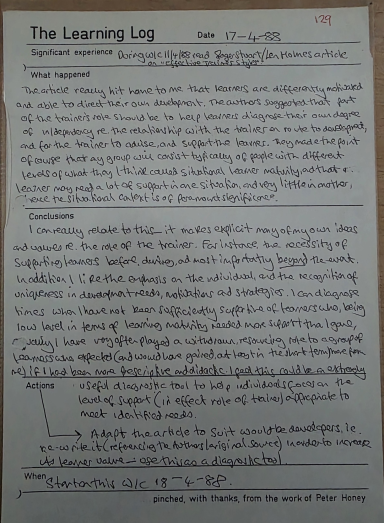 129
The Learning Log Date 17-4-88
Significant experience During w/c 11/4/88 read Roger Stuart/Len Holmes article
on "effective Trainer Styles"
What happened
The article really hit home to me that learners are differently motivated
and able to direct their own development. The authors suggested that part
of the trainers role should be to help learners diagnose their own degree
of in/dependency re. the relationship with the trainer en route to development,
and for the trainer to advise, and support the learner. They made the point
of course that any group will consist typically of people with different
levels of what they I think called situational learner maturity, and that a
learner may need a lot of support in one situation, and very little in another,
hence the situational context is of paramount significance.
Conclusions
I can really relate to this – it makes explicit many of my own ideas
and values re. the role of the trainer. For instance, the necessity of
supporting learners before, during, and most importantly beyond the event.
In addition I like the emphasis on the individual, and the recognition of
uniqueness in development needs, motivations and strategies. I can diagnose
times when I have not been sufficiently supportive of learners who, being
low level in terms of learning maturity needed more support than I gave,
I have very often played a withdrawn, resourcing role to a group of
learners who expected (and would have gained, at least in the short term from
me) if I had been more prescriptive and didactic. I feel this could be a extremely
Actions useful diagnostic tool to help individuals focus on the
level of support (in effect role of trainer) appropriate to
meet identified needs.
Adapt the article to suit would be developers, i.e.
re-write it (referencing the Authors/original source) in order to increase
its learner value – use this as a diagnostic tool.
When Start on this w/c 18-4-88.
pinched, with thanks, from the work of Peter Honey